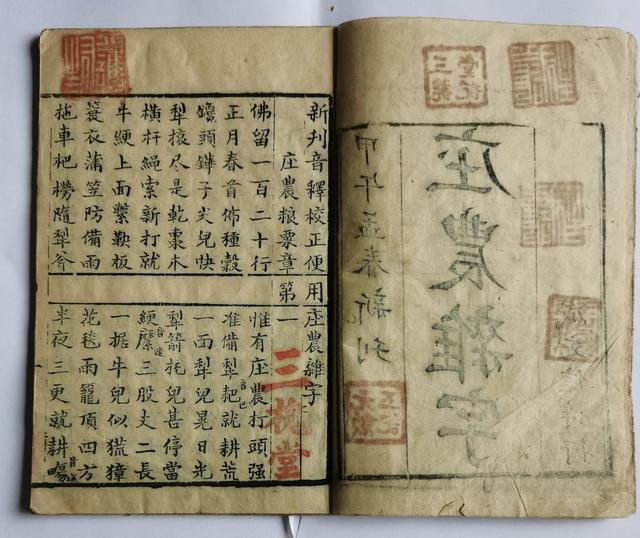 庄農雜字
甲午孟春新刊
新刊音釋校正便用庄農雜字
庄農粮粟章第一
佛留一百二十行
惟有庄農打頭强
正月春首佈種穀
准備犁耙就耕荒
頭鏵子尖兒快
一面犁兒晃日光
犁轅尽是乾棗木
犁箭托兒甚停當
横杆繩索新打就
綆縻三股丈二長
牛綆上面繫鞅板
一掘牛兒似獐
簑衣蒲笠防備雨
花毯雨籠頂四方
拖車耙楞隨犁斧
半夜三更就耕畼
三槐堂